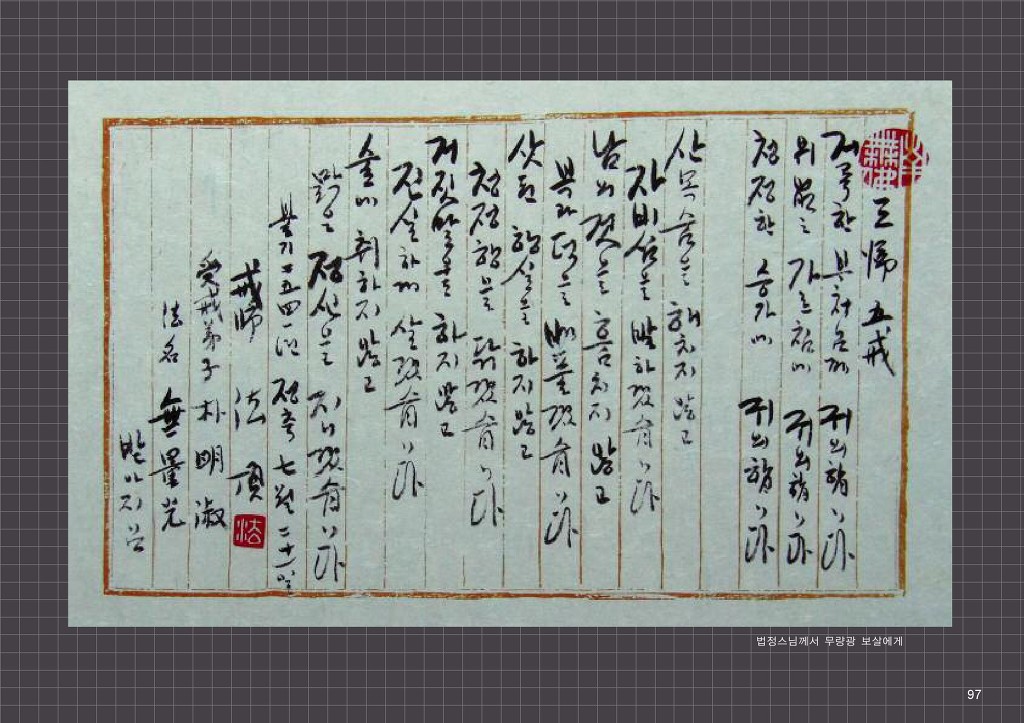 三歸 五戒
거룩한 부처님께 귀의합니다
위없는 가르침에 귀의합니다
청정한 승가에 귀의합니다
산 목숨을 해치지 않고
자비심을 발하겠습니다
남의 것을 훔치지 않고
복과 덕을 베풀겠습니다
삿된 행실을 하지 않고
청정행을 닦겠습니다
거짓말을 하지 않고
진실하게 살겠습니다
술에 취하지 않고
맑은 정신을 지니겠습니다
불기 二五四一년 정축 七월 二十一일
戒師 法 頂
受戒弟子 朴明淑
法名 無量光
받아 지님
법정스님께서 무량광 보살에게
97